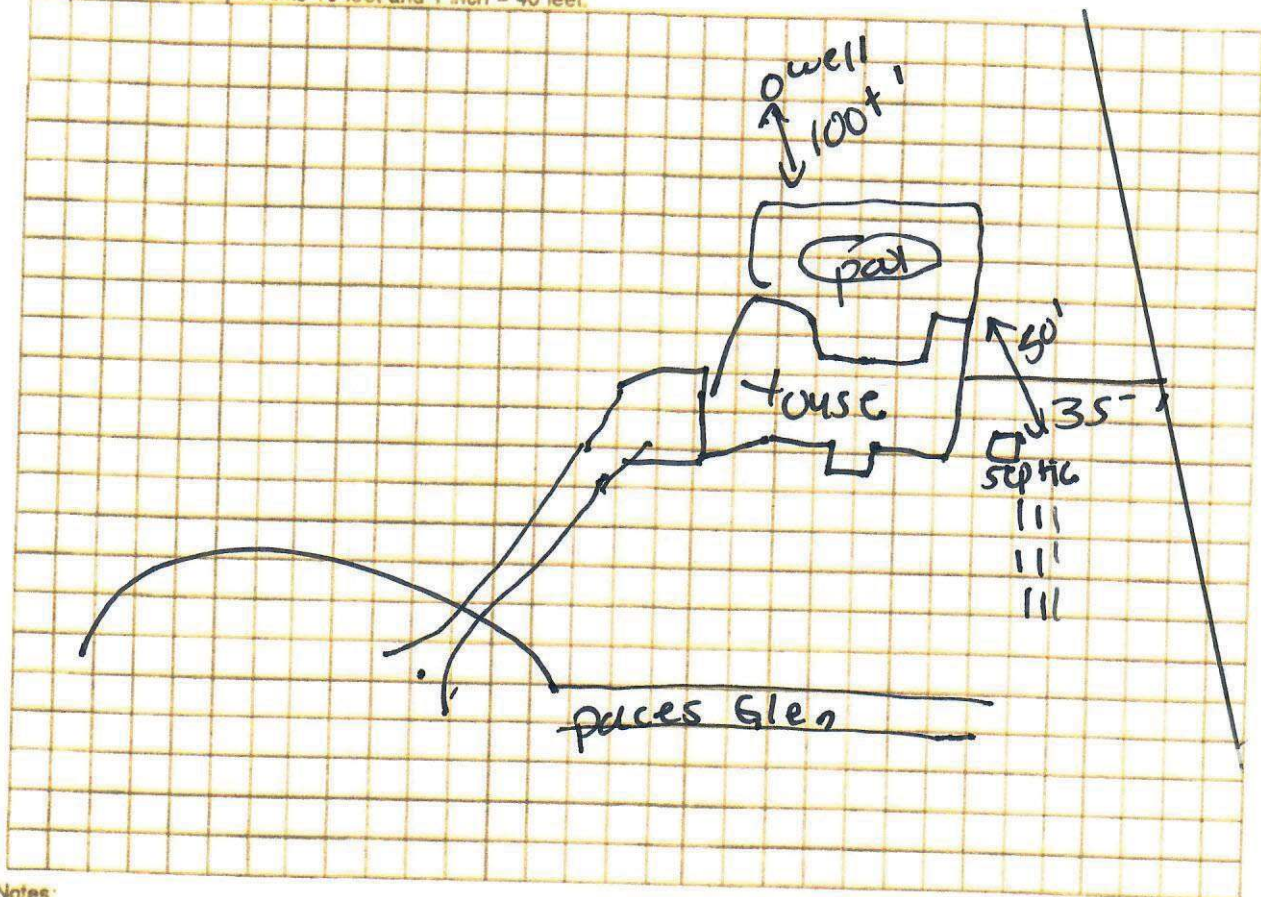 10 feet and 1 inch = 40 feet.
well
100+'
pool
50'
House
35'
septic
paces Glen
Notes: